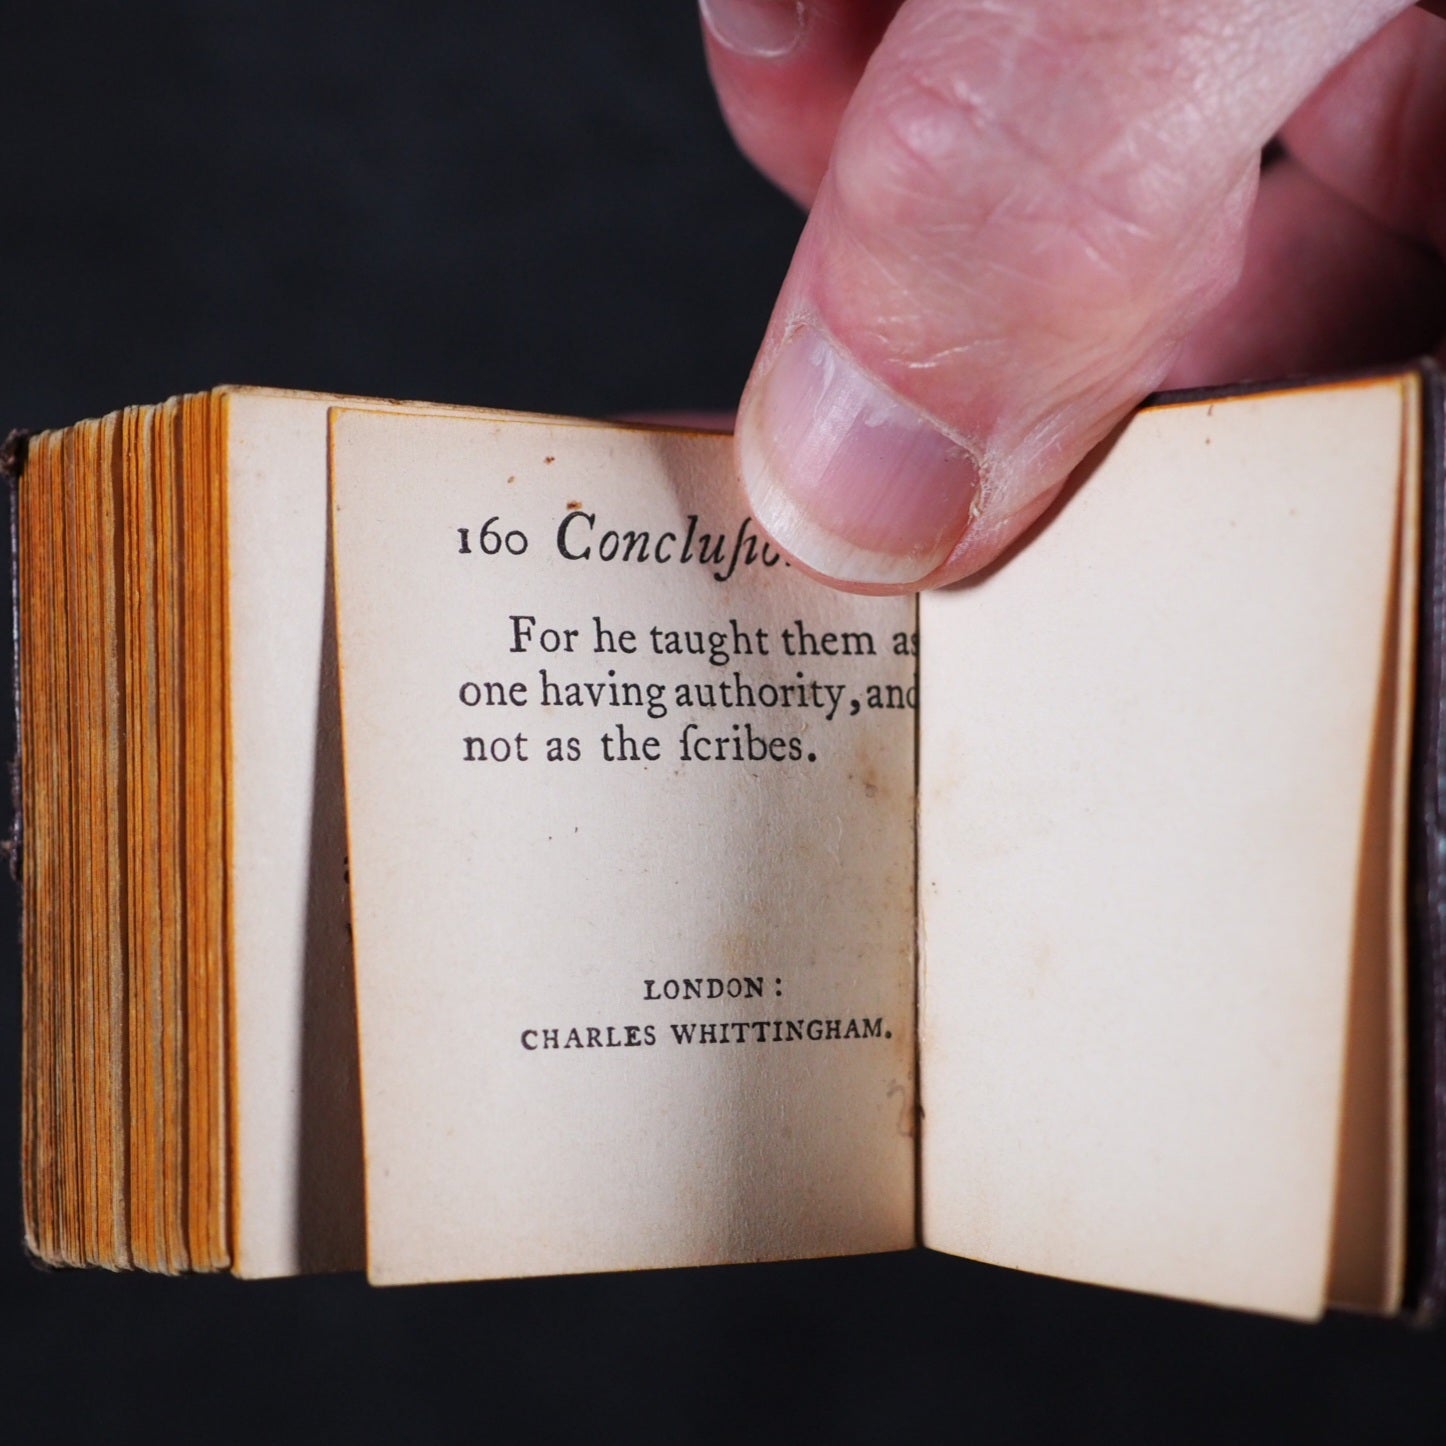 160 Concluſio
For he taught them as
one having authority, and
not as the ſcribes.
LONDON:
CHARLES WHITTINGHAM.